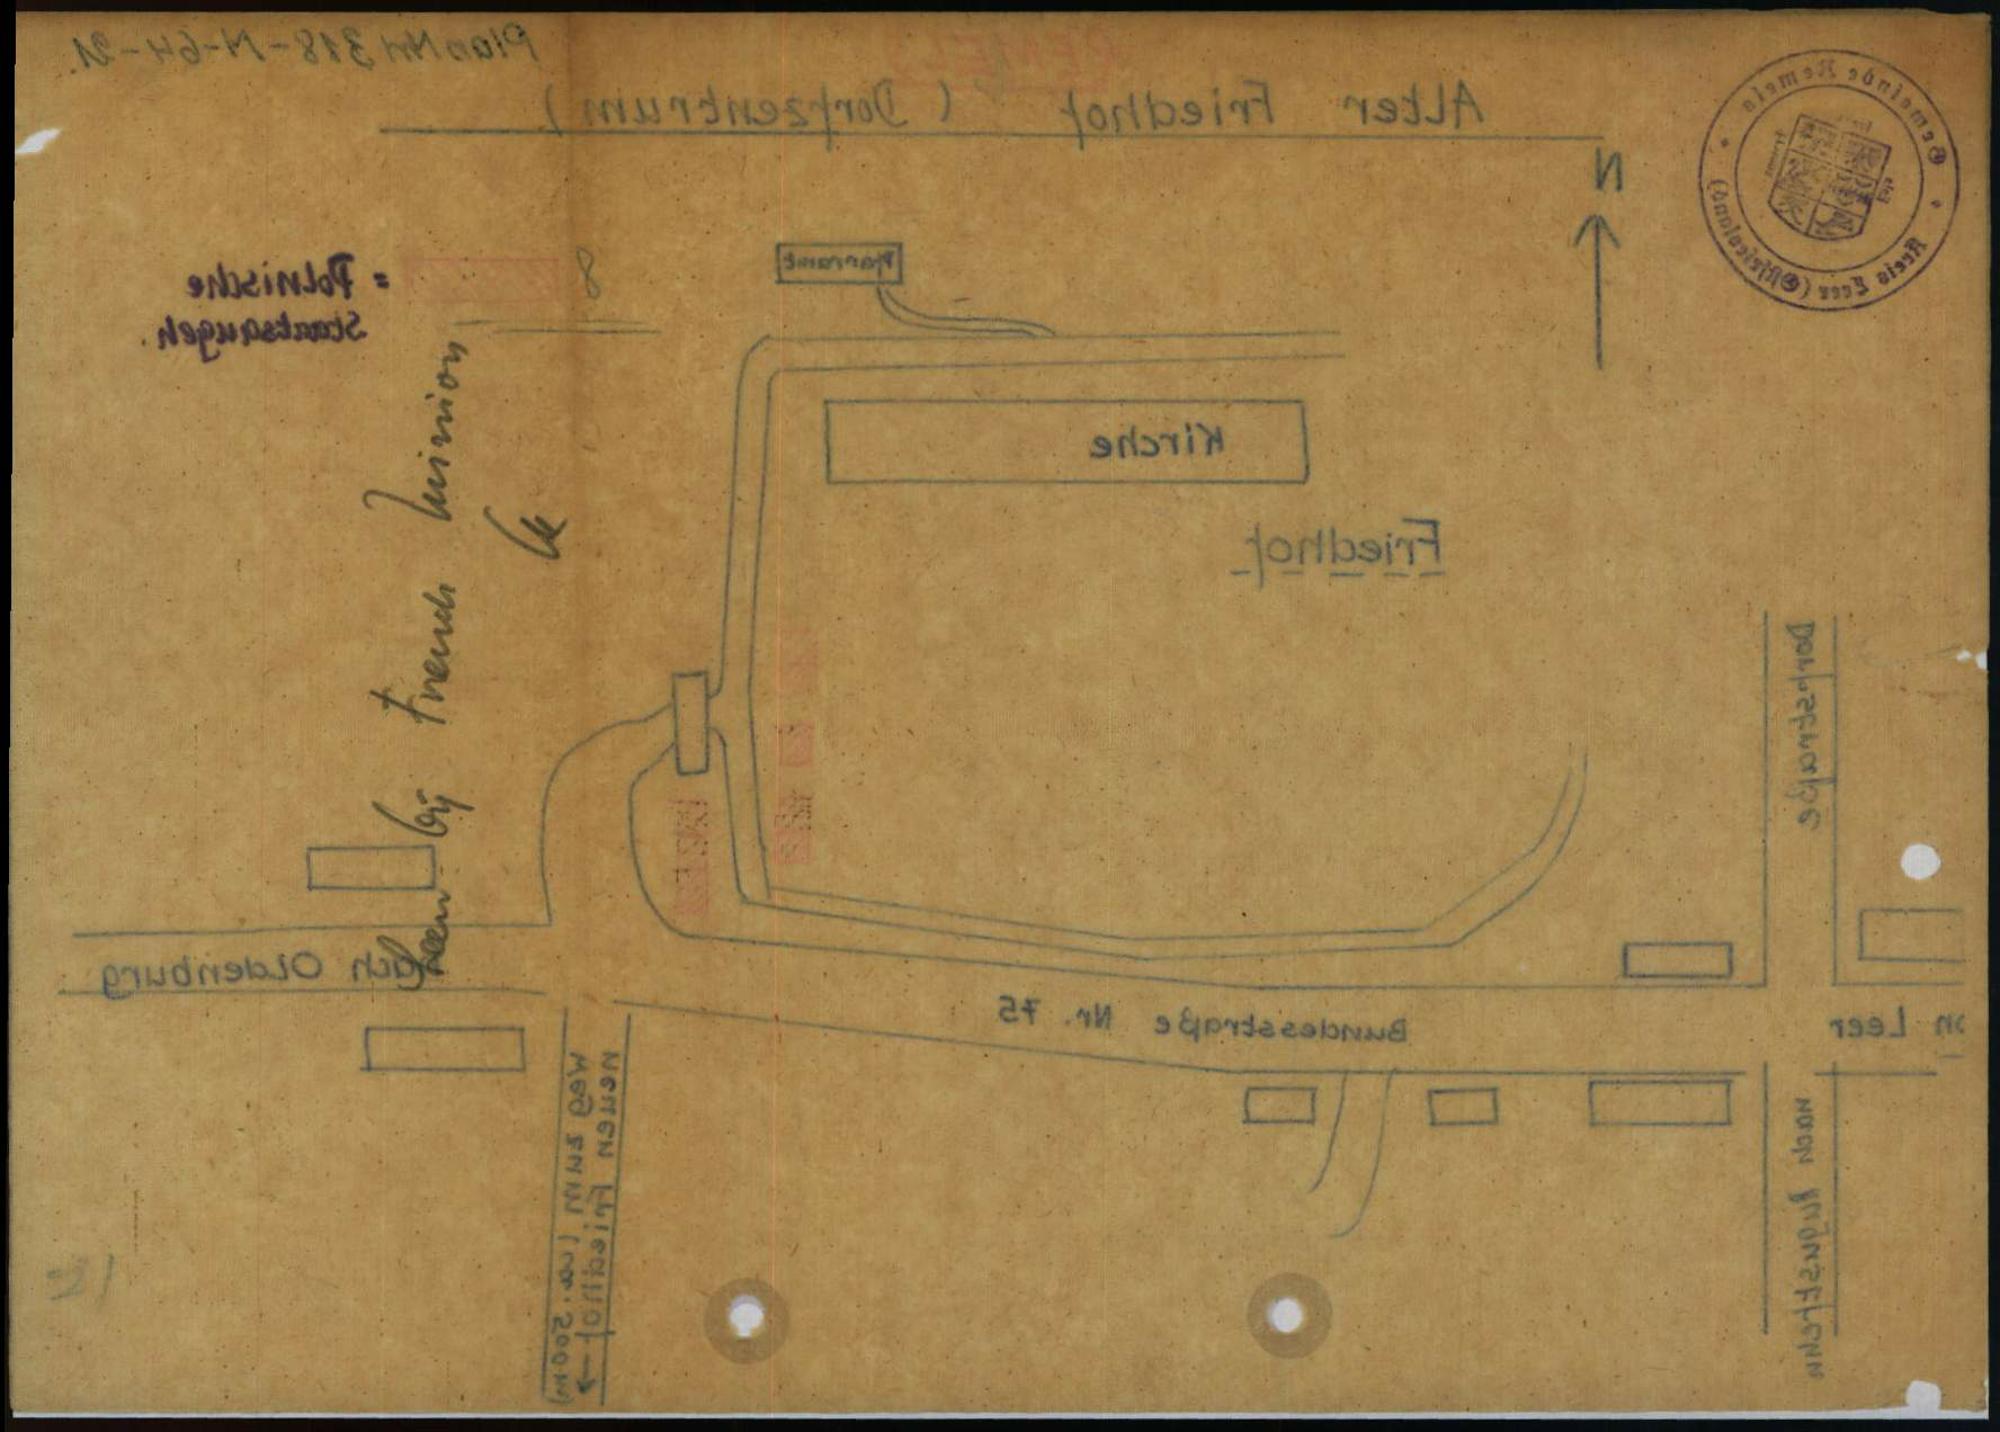 Plan Nr 318-N-64-21.
REMELS
Alter Friedhof (Dorfzentrum)
Gemeinde Remels
Kreis Leer (Ostfriesland)
N
Pfarramt
8
= Polnische
Staatsangeh.
Kirche
Friedhof
Seen by French Mission
Dorfstraße
nach Oldenburg
Bundesstraße Nr. 75
on Leer
nach Augustfehn
Weg zum (ca. 500m)
neuen Friedhof